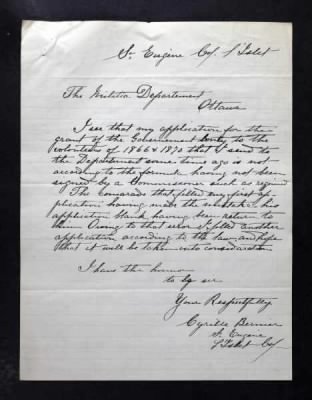 St. Eugene Co/. l'Islet
The Militia Departement
Ottawa
I see that my application for the
grant of the Governement to the
volunteers of 1866 & 1870 that I send to
the Departement some time ago is not
according to the formula having not been
signed by a Commissioner such as required
The Comarade that filled my first ap
plication having made the mistake & his
application blank having been return to
him Owing to that error I filled another
application according to the law and hope
that it will be taken into consideration
I have the honor
to be sir
Your Respectfully
Cyrille Bernier
St. Eugene
l'Islet Co/